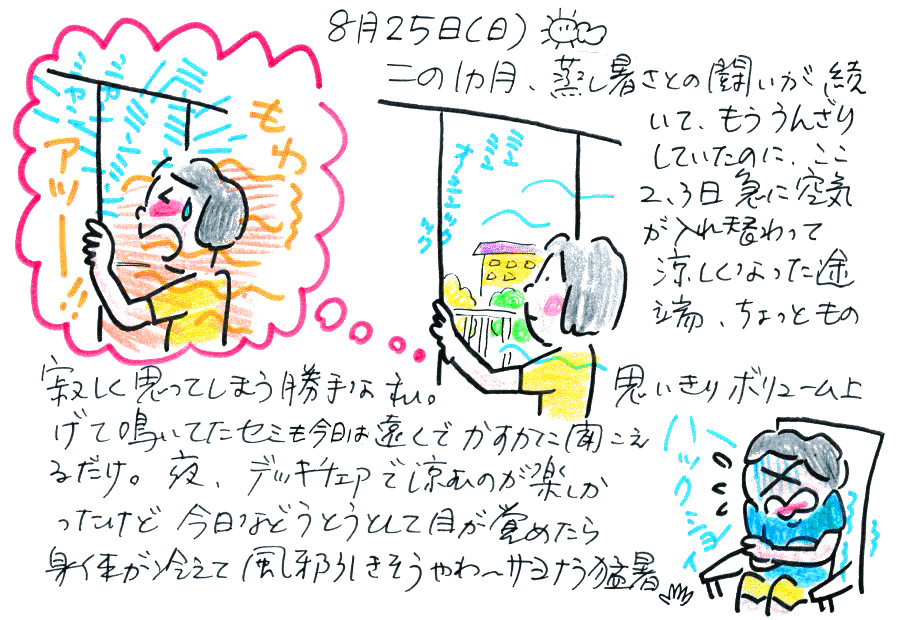 8月25日(日)
この1カ月、蒸し暑さとの闘いが続
いて、もううんざり
していたのに、ここ
2、3日急に空気
が入れ替わって
涼しくなった途
端、ちょっともの
寂しく思ってしまう勝手な私。
思いきりボリューム上
げて鳴いてたセミも今日は遠くでかすかに聞こえ
るだけ。夜、デッキチェアで涼むのが楽しか
ったけど今日などうとうとして目が覚めたら
身体が冷えて風邪引きそうやわ〜サヨナラ猛暑
もわ〜
アツー!!
ハーックショイ